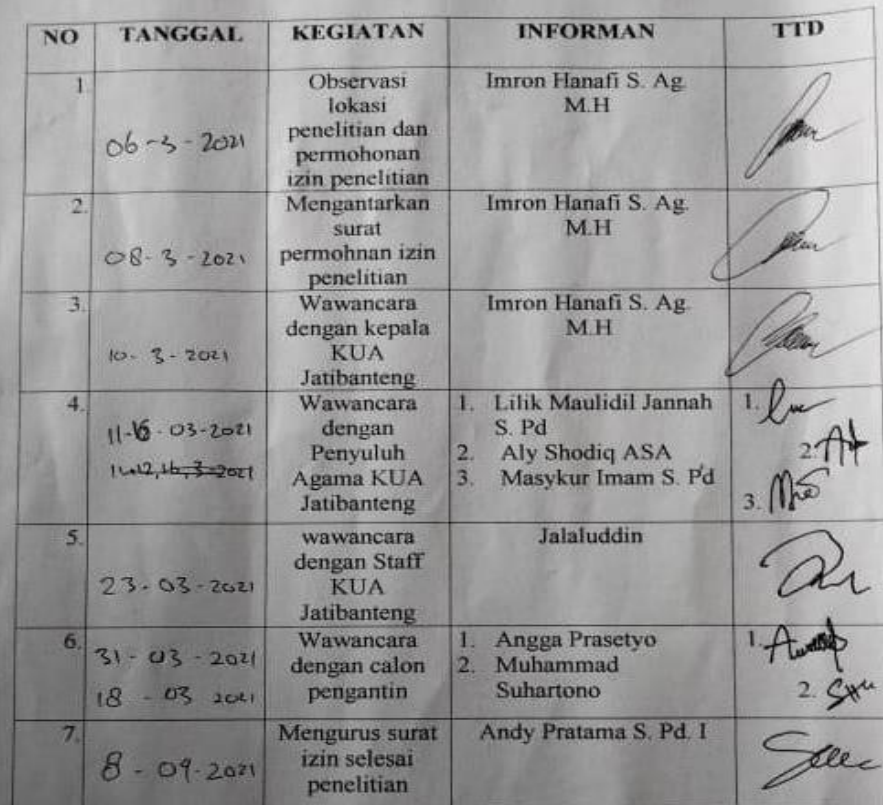 NO TANGGAL KEGIATAN INFORMAN TTD
1.
06-3-2021
Observasi
lokasi
penelitian dan
permohonan
izin penelitian
Imron Hanafi S. Ag.
M.H
2.
08-3-2021
Mengantarkan
surat
permohnan izin
penelitian
Imron Hanafi S. Ag.
M.H
3.
10-3-2021
Wawancara
dengan kepala
KUA
Jatibanteng
Imron Hanafi S. Ag.
M.H
4.
11-16-03-2021
Wawancara
dengan
Penyuluh
Agama KUA
Jatibanteng
1. Lilik Maulidil Jannah
S. Pd
2. Aly Shodiq ASA
3. Masykur Imam S. Pd
1.
2.
3.
5.
23-03-2021
wawancara
dengan Staff
KUA
Jatibanteng
Jalaluddin
6.
31-03-2021
18-03 2021
Wawancara
dengan calon
pengantin
1. Angga Prasetyo
2. Muhammad
Suhartono
1.
2.
7.
8-09-2021
Mengurus surat
izin selesai
penelitian
Andy Pratama S. Pd. I